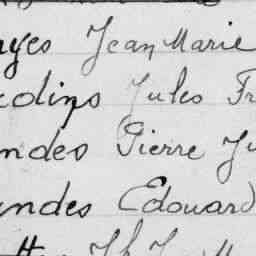 yes Jean Marie
dins Jules Fr
ndes Pierre Ju
ndes Edouard